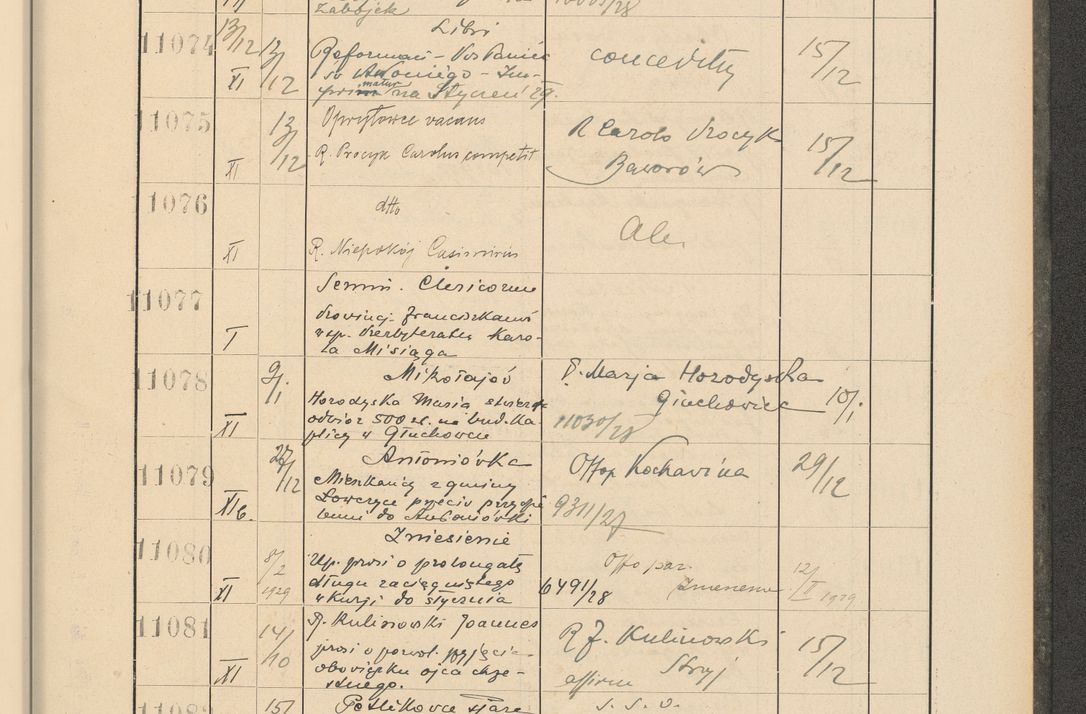 11074 13/12 13/12 Libri
Reformaci - Posłaniec
św Antoniego - Im-
primatur na Styczeń 29.
XI
conceditur
15/12
11075 13/12 Opryłowce vacans
R. Procyk Carolus competit
XI
R Carolo Procyk
Baworów
15/12
11076 dtto
R. Niepokój Casimirus
XI
Ale.
11077 Semin. Clericorum
Prowincj. Franciszkanów
w sp. Presbyteratu Karo-
la Misiąga
I
11078 9/1 Mikołajów
Horodyska Maria stwierdz
odbiór 500 zł. na bud. Ka-
plicy w Głuchowcu
XI
P. Marja Horodyska
Głuchowiec
11030/28
10/1
11079 27/12 Antoniówka
Mieszkańcy z gminy
Łowczyce przeciw przydzie
leniu do Antoniówki
XIb.
Offop Kochavina
9311/27
29/12
11080 8/2 1929 Zniesienie
Up. prosi o prolongatę
długu zaciągniętego
w Kurji do stycznia
XI
Offo par.
Zniesienie
6491/28
12/II 1929
11081 14/10 R. Kulinowski Joannes
prosi o pozwol. przyjęcia
obowiązku ojca chrze-
stnego.
XI
R J. Kulinowski
Stryj
affirm
15/12
11082 15/ Petlikowce stare